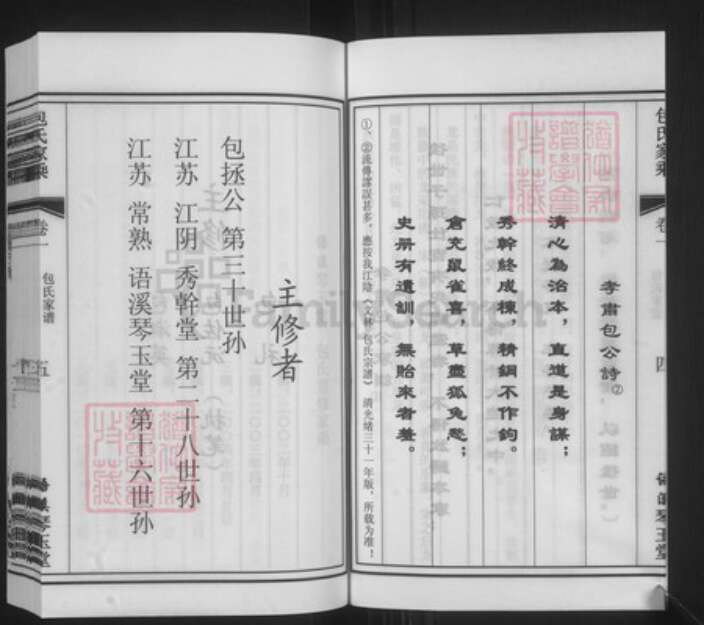 包氏家乘
卷一
四
琴玉堂
孝肅包公詩②
清心為治本，直道是身謀；
秀幹終成棟，精鋼不作鉤。
倉充鼠雀喜，草盡狐兔愁；
史册有遺訓，無貽來者羞。
①、②流傳謬誤甚多，應按我江陰《文林包氏宗譜》清光緒三十一年版，所載为准！
主修者
包拯公 第三十世孙
江苏 江阴 秀幹堂 第二十八世孙
江苏 常熟 语溪琴玉堂 第十六世孙
包氏家乘
卷一
包氏家谱
五
琴玉堂
FamilySearch